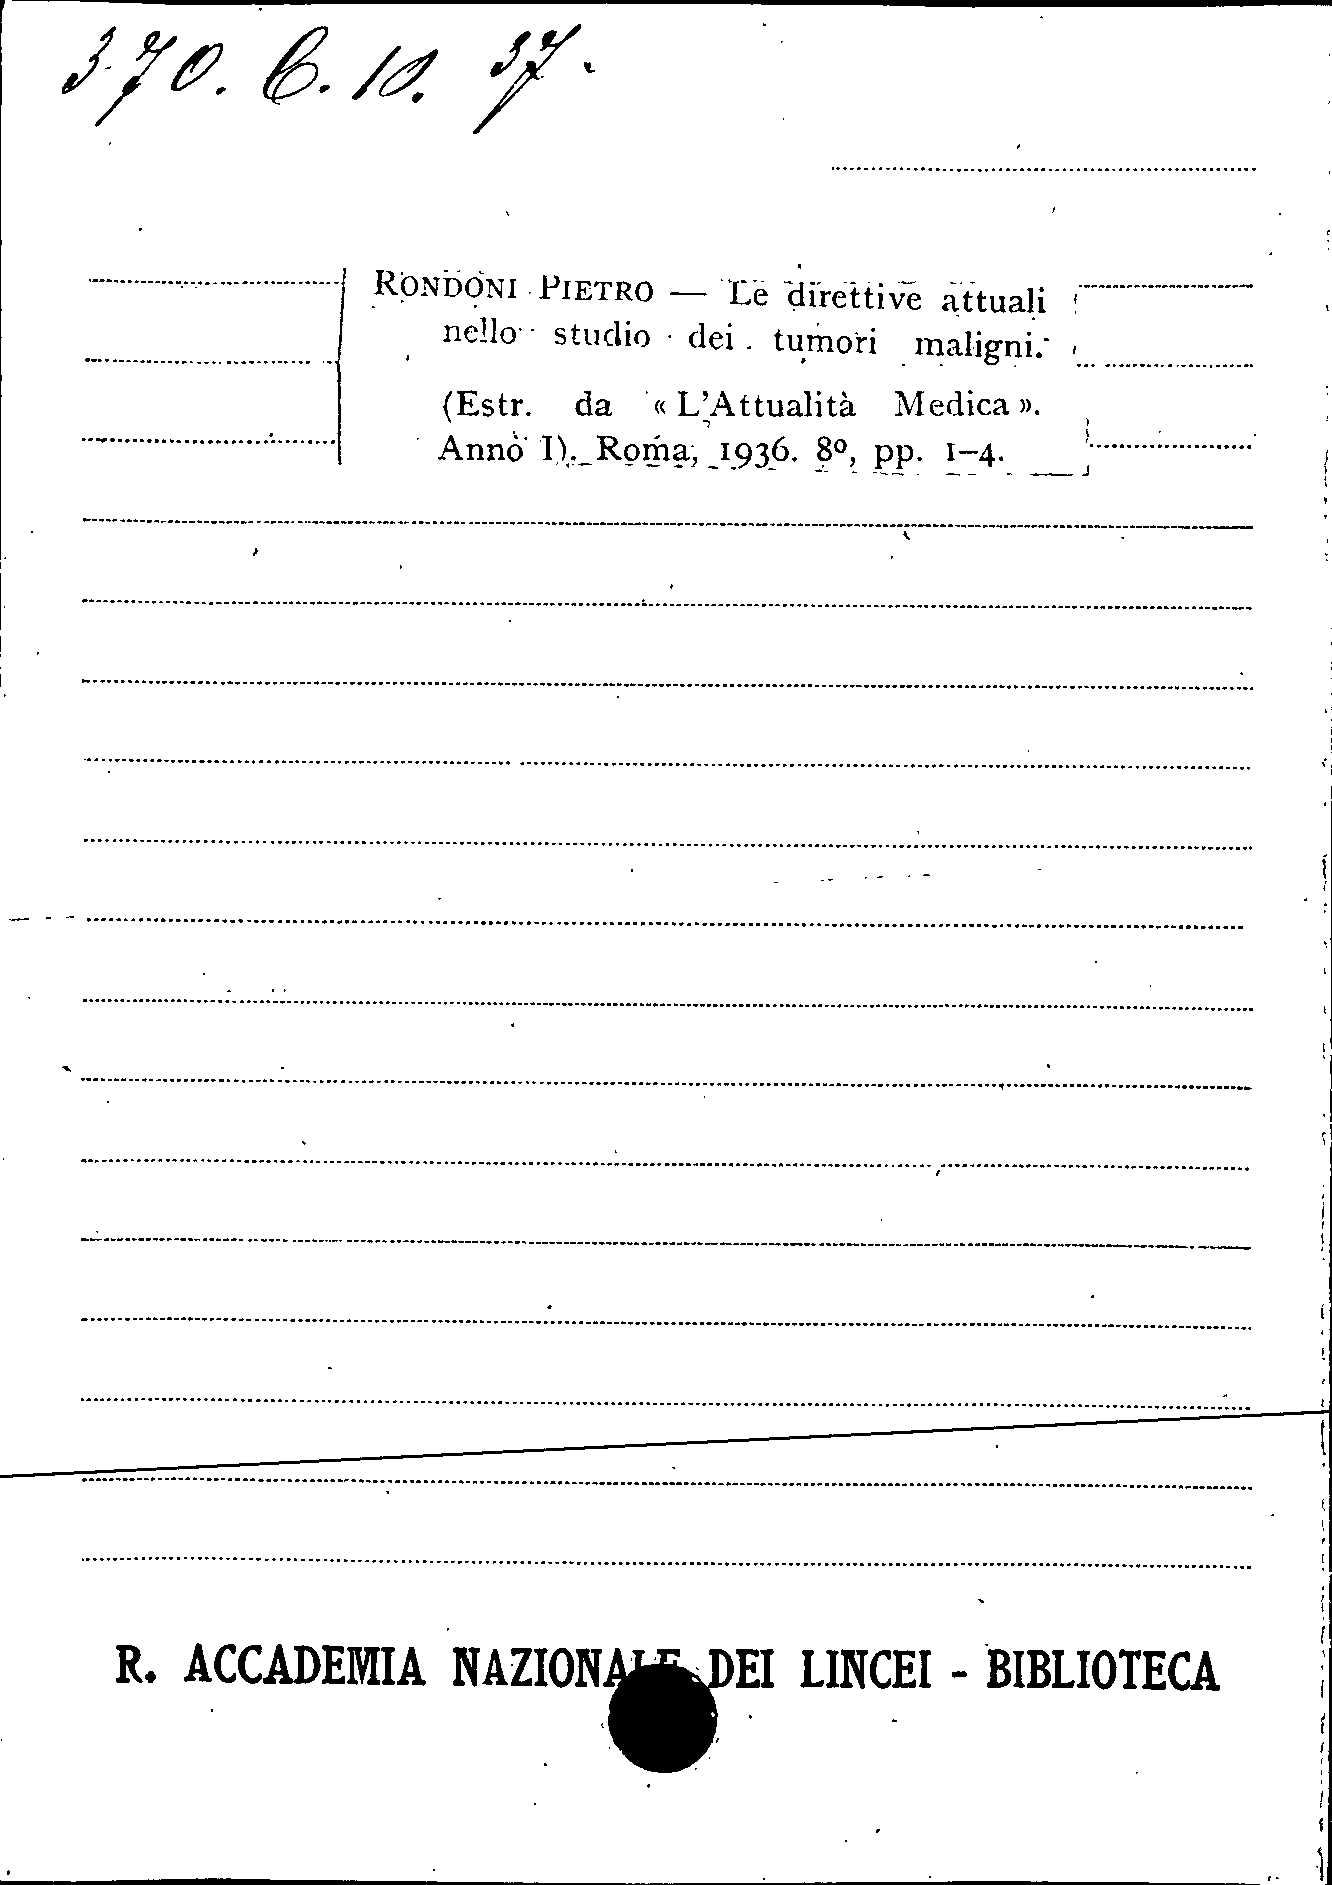 370. C. 10. 37.
RONDONI PIETRO — Le direttive attuali
nello studio dei tumori maligni.
(Estr. da « L'Attualità Medica ».
Anno I). Roma, 1936. 8º, pp. 1-4.
R. ACCADEMIA NAZIONALE DEI LINCEI - BIBLIOTECA